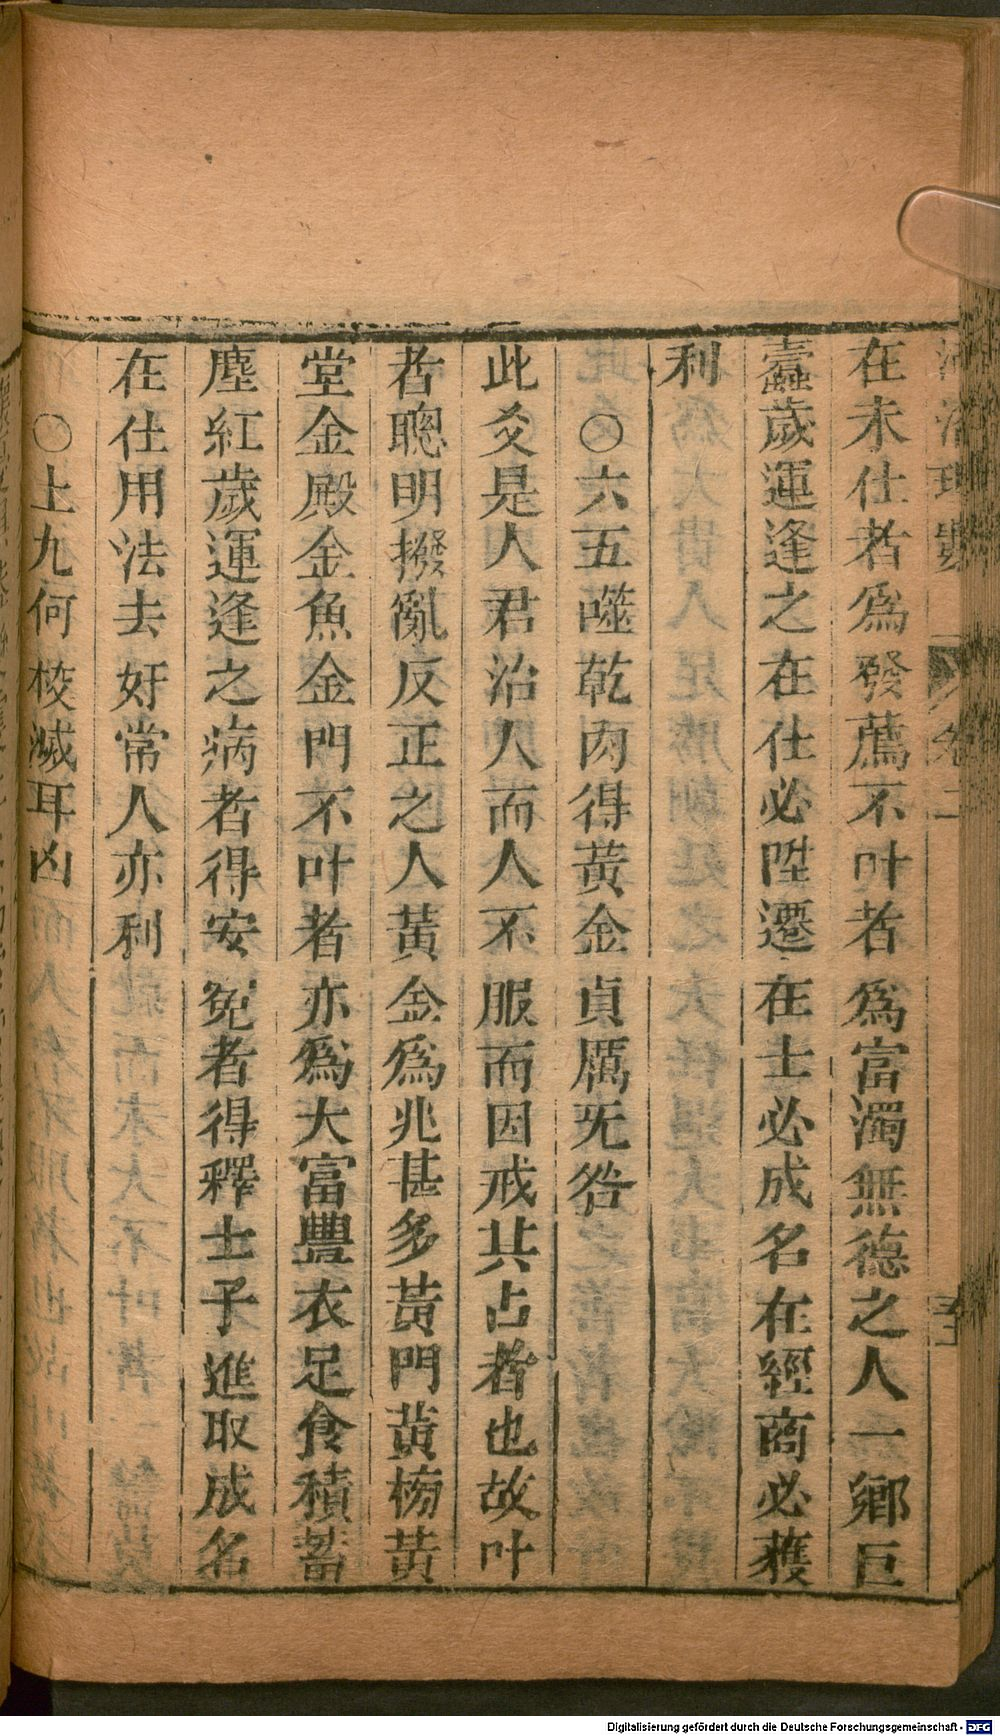 在未仕者爲發薦不叶者爲富濁無德之人一鄉巨
蠹歲運逢之在仕必陞遷在士必成名在經商必獲
利
○六五噬乾肉得黃金貞厲旡咎
此爻是人君治人而人不服而因戒其占者也故叶
者聰明撥亂反正之人黃金爲兆甚多黃門黃榜黃
堂金殿金魚金門不叶者亦爲大富豐衣足食積蓄
塵紅歲運逢之病者得安冤者得釋士子進取成名
在仕用法去奸常人亦利
○上九何校滅耳凶
Digitalisierung gefördert durch die Deutsche Forschungsgemeinschaft - DFG